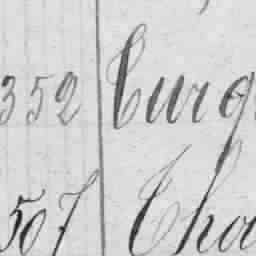 352 Curg
507 Cha